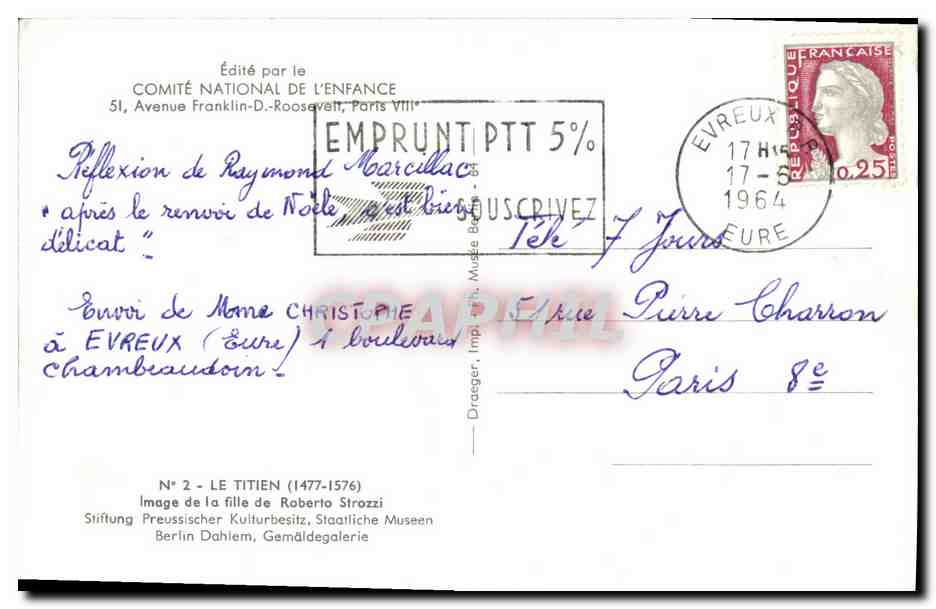 Édité par le
COMITÉ NATIONAL DE L'ENFANCE
51, Avenue Franklin-D.-Roosevelt, Paris VIIIe
EMPRUNT PTT 5%
SOUSCRIVEZ
EVREUX R.P.
17 H15
17-6
1964
EURE
RÉPUBLIQUE FRANÇAISE
POSTES
0,25
Réflexion de Raymond Marcillac
"après le renvoi de Noële, c'est bien
délicat"
Envoi de Mme CHRISTOPHE
à EVREUX (Eure) 1 boulevard
Chambeaudoin -
Télé 7 Jours
51 rue Pierre Charron
Paris 8e
Draeger, Imp. - Ph. Musée Berlin - 64
CPAPHIL
N° 2 - LE TITIEN (1477-1576)
Image de la fille de Roberto Strozzi
Stiftung Preussischer Kulturbesitz, Staatliche Museen
Berlin Dahlem, Gemäldegalerie